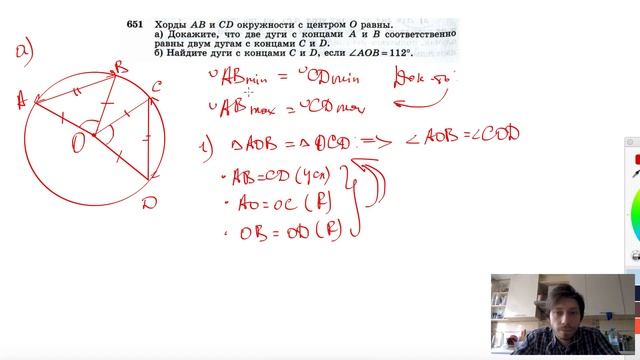 651 Хорды AB и CD окружности с центром O равны.
а) Докажите, что две дуги с концами A и B соответственно
равны двум дугам с концами C и D.
б) Найдите дуги с концами C и D, если ∠AOB = 112°.
а)
A
B
C
O
D
◡ABmin = ◡CDmin
Док-ть:
◡ABmax = ◡CDmax
1) △AOB = △OCD: => ∠AOB = ∠COD
· AB = CD (усл)
· AO = OC (R)
· OB = OD (R)